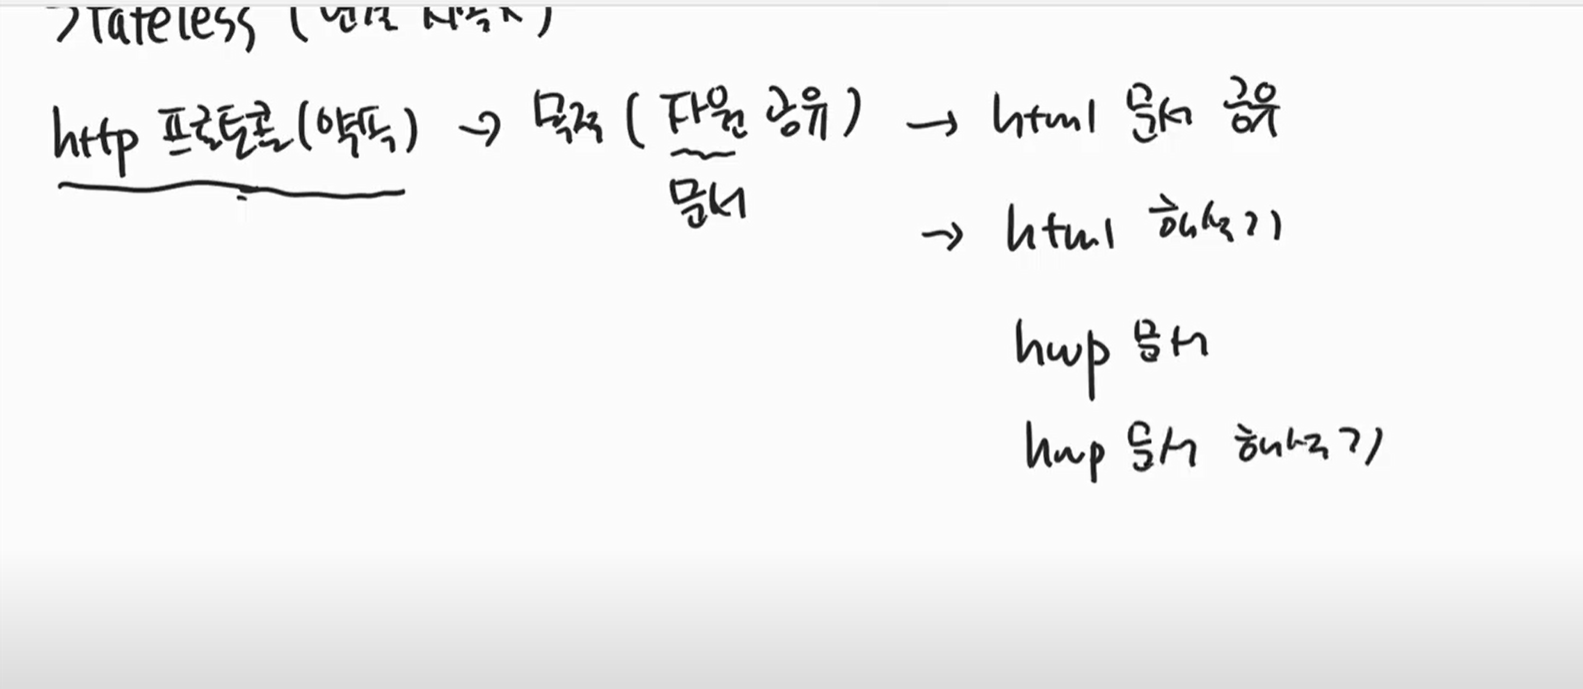 Stateless (
http 프로토콜(약속) → 목적 ( 자원 공유 ) → html 문서 공유
문서
→ html 해석기
hwp 문서
hwp 문서 해석기